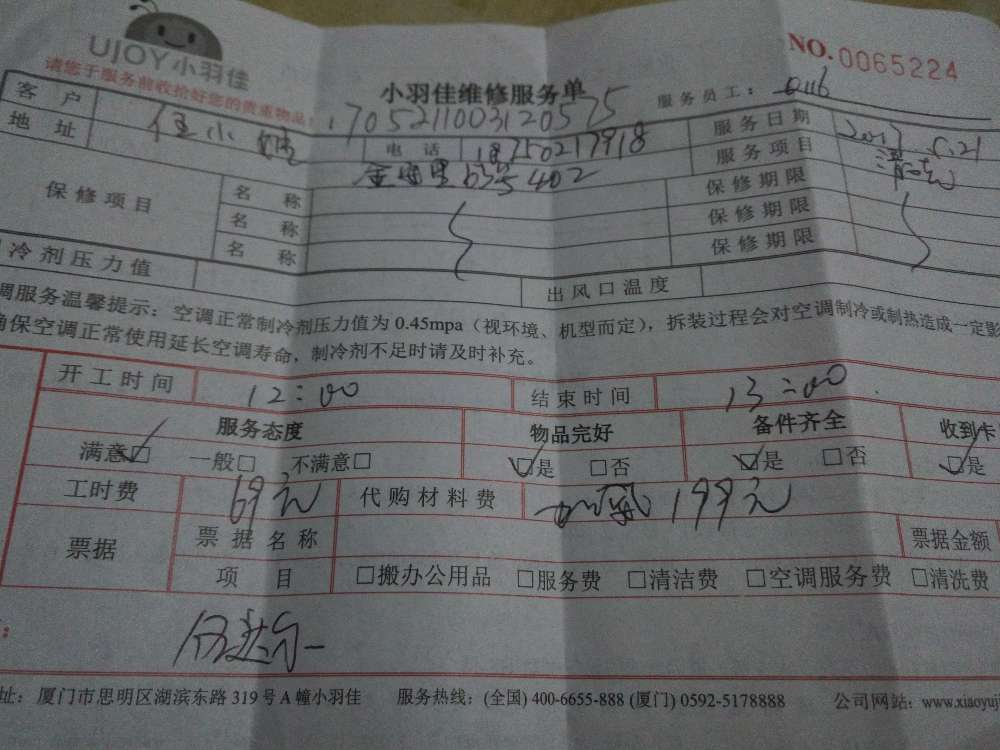 UJOY小羽佳
NO.0065224
请您于服务前收拾好您的贵重物品!
小羽佳维修服务单
服务员工: 0116
17052110031205​75
客户
电话 18750217918
服务日期 2017 5.21
地址 402
服务项目 清洗
保修项目 名称 保修期限
名称 保修期限
名称 保修期限
冷剂压力值 出风口温度
调服务温馨提示:空调正常制冷剂压力值为 0.45mpa(视环境、机型而定),拆装过程会对空调制冷或制热造成一定影
确保空调正常使用延长空调寿命,制冷剂不足时请及时补充。
开工时间 12:00 结束时间 13:00
服务态度 物品完好 备件齐全 收到卡
满意☑ 一般□ 不满意□ ☑是 □否 ☑是 □否 ☑是
工时费 69元 代购材料费 加氟 199元
票据 票据名称 票据金额
项目 □搬办公用品 □服务费 □清洁费 □空调服务费 □清洗费
址:厦门市思明区湖滨东路 319 号 A 幢小羽佳 服务热线:(全国) 400-6655-888 (厦门) 0592-5178888 公司网站:www.xiaoyuj